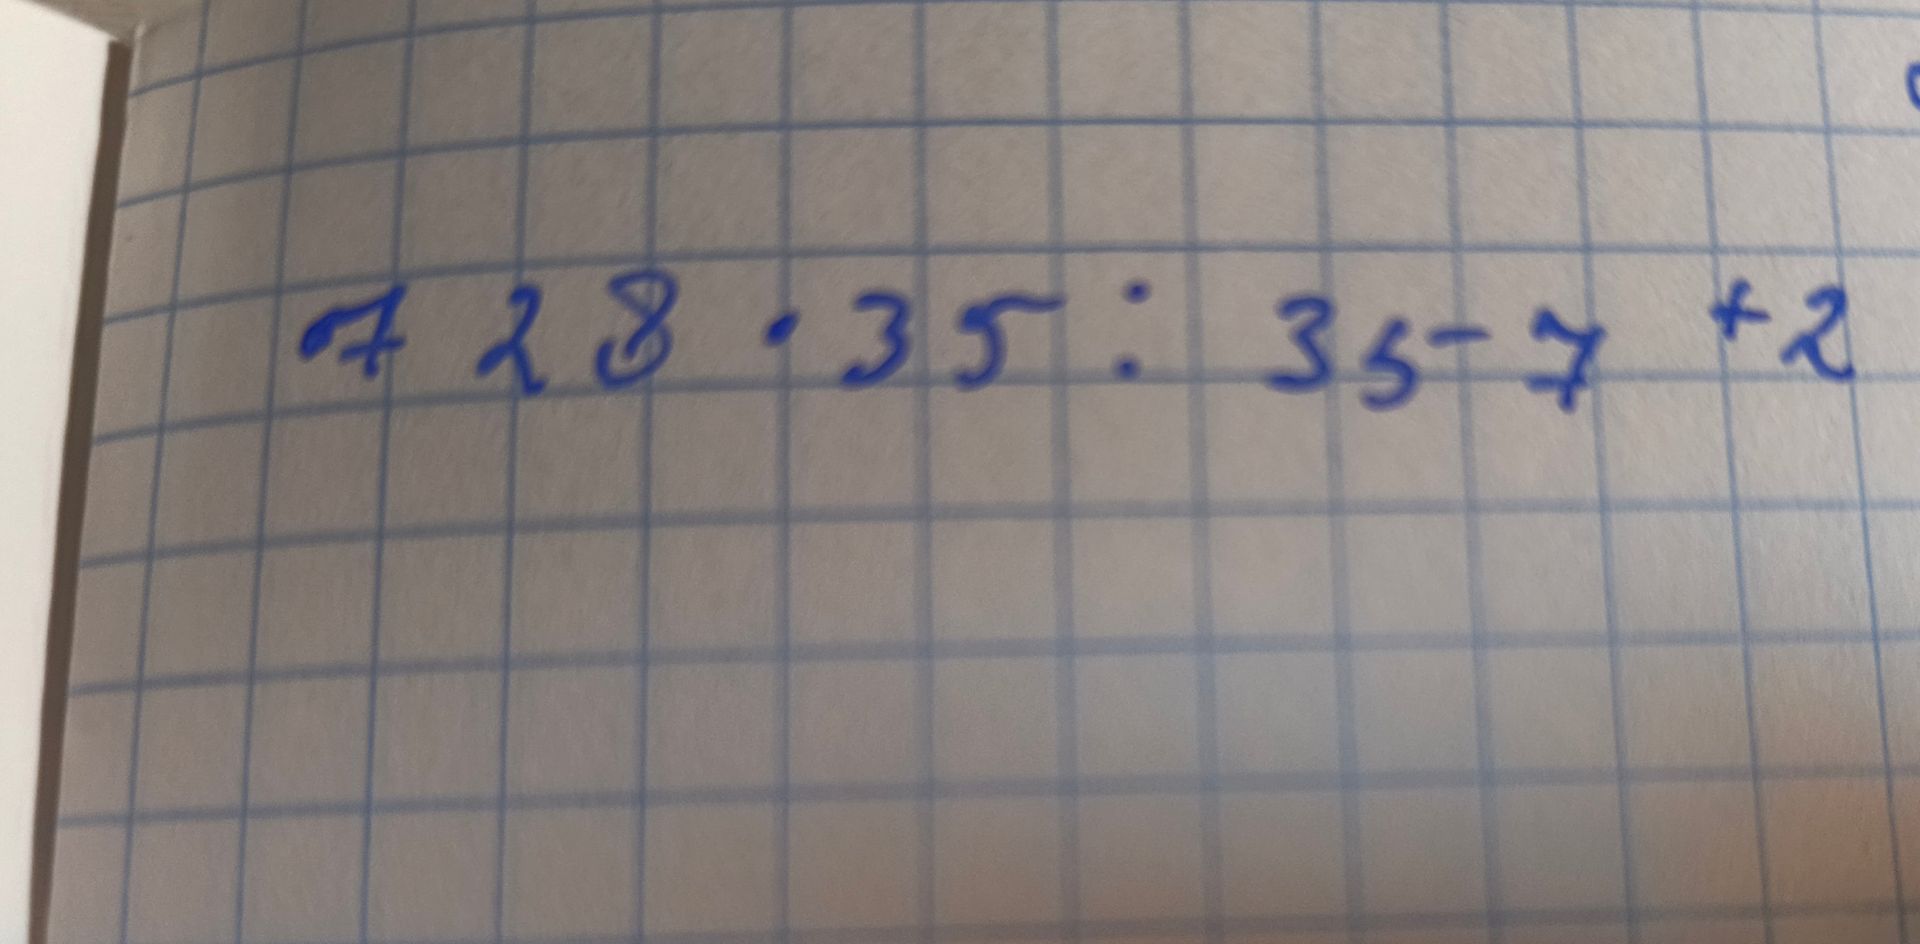 728 · 35 : 35 - 7 + 2